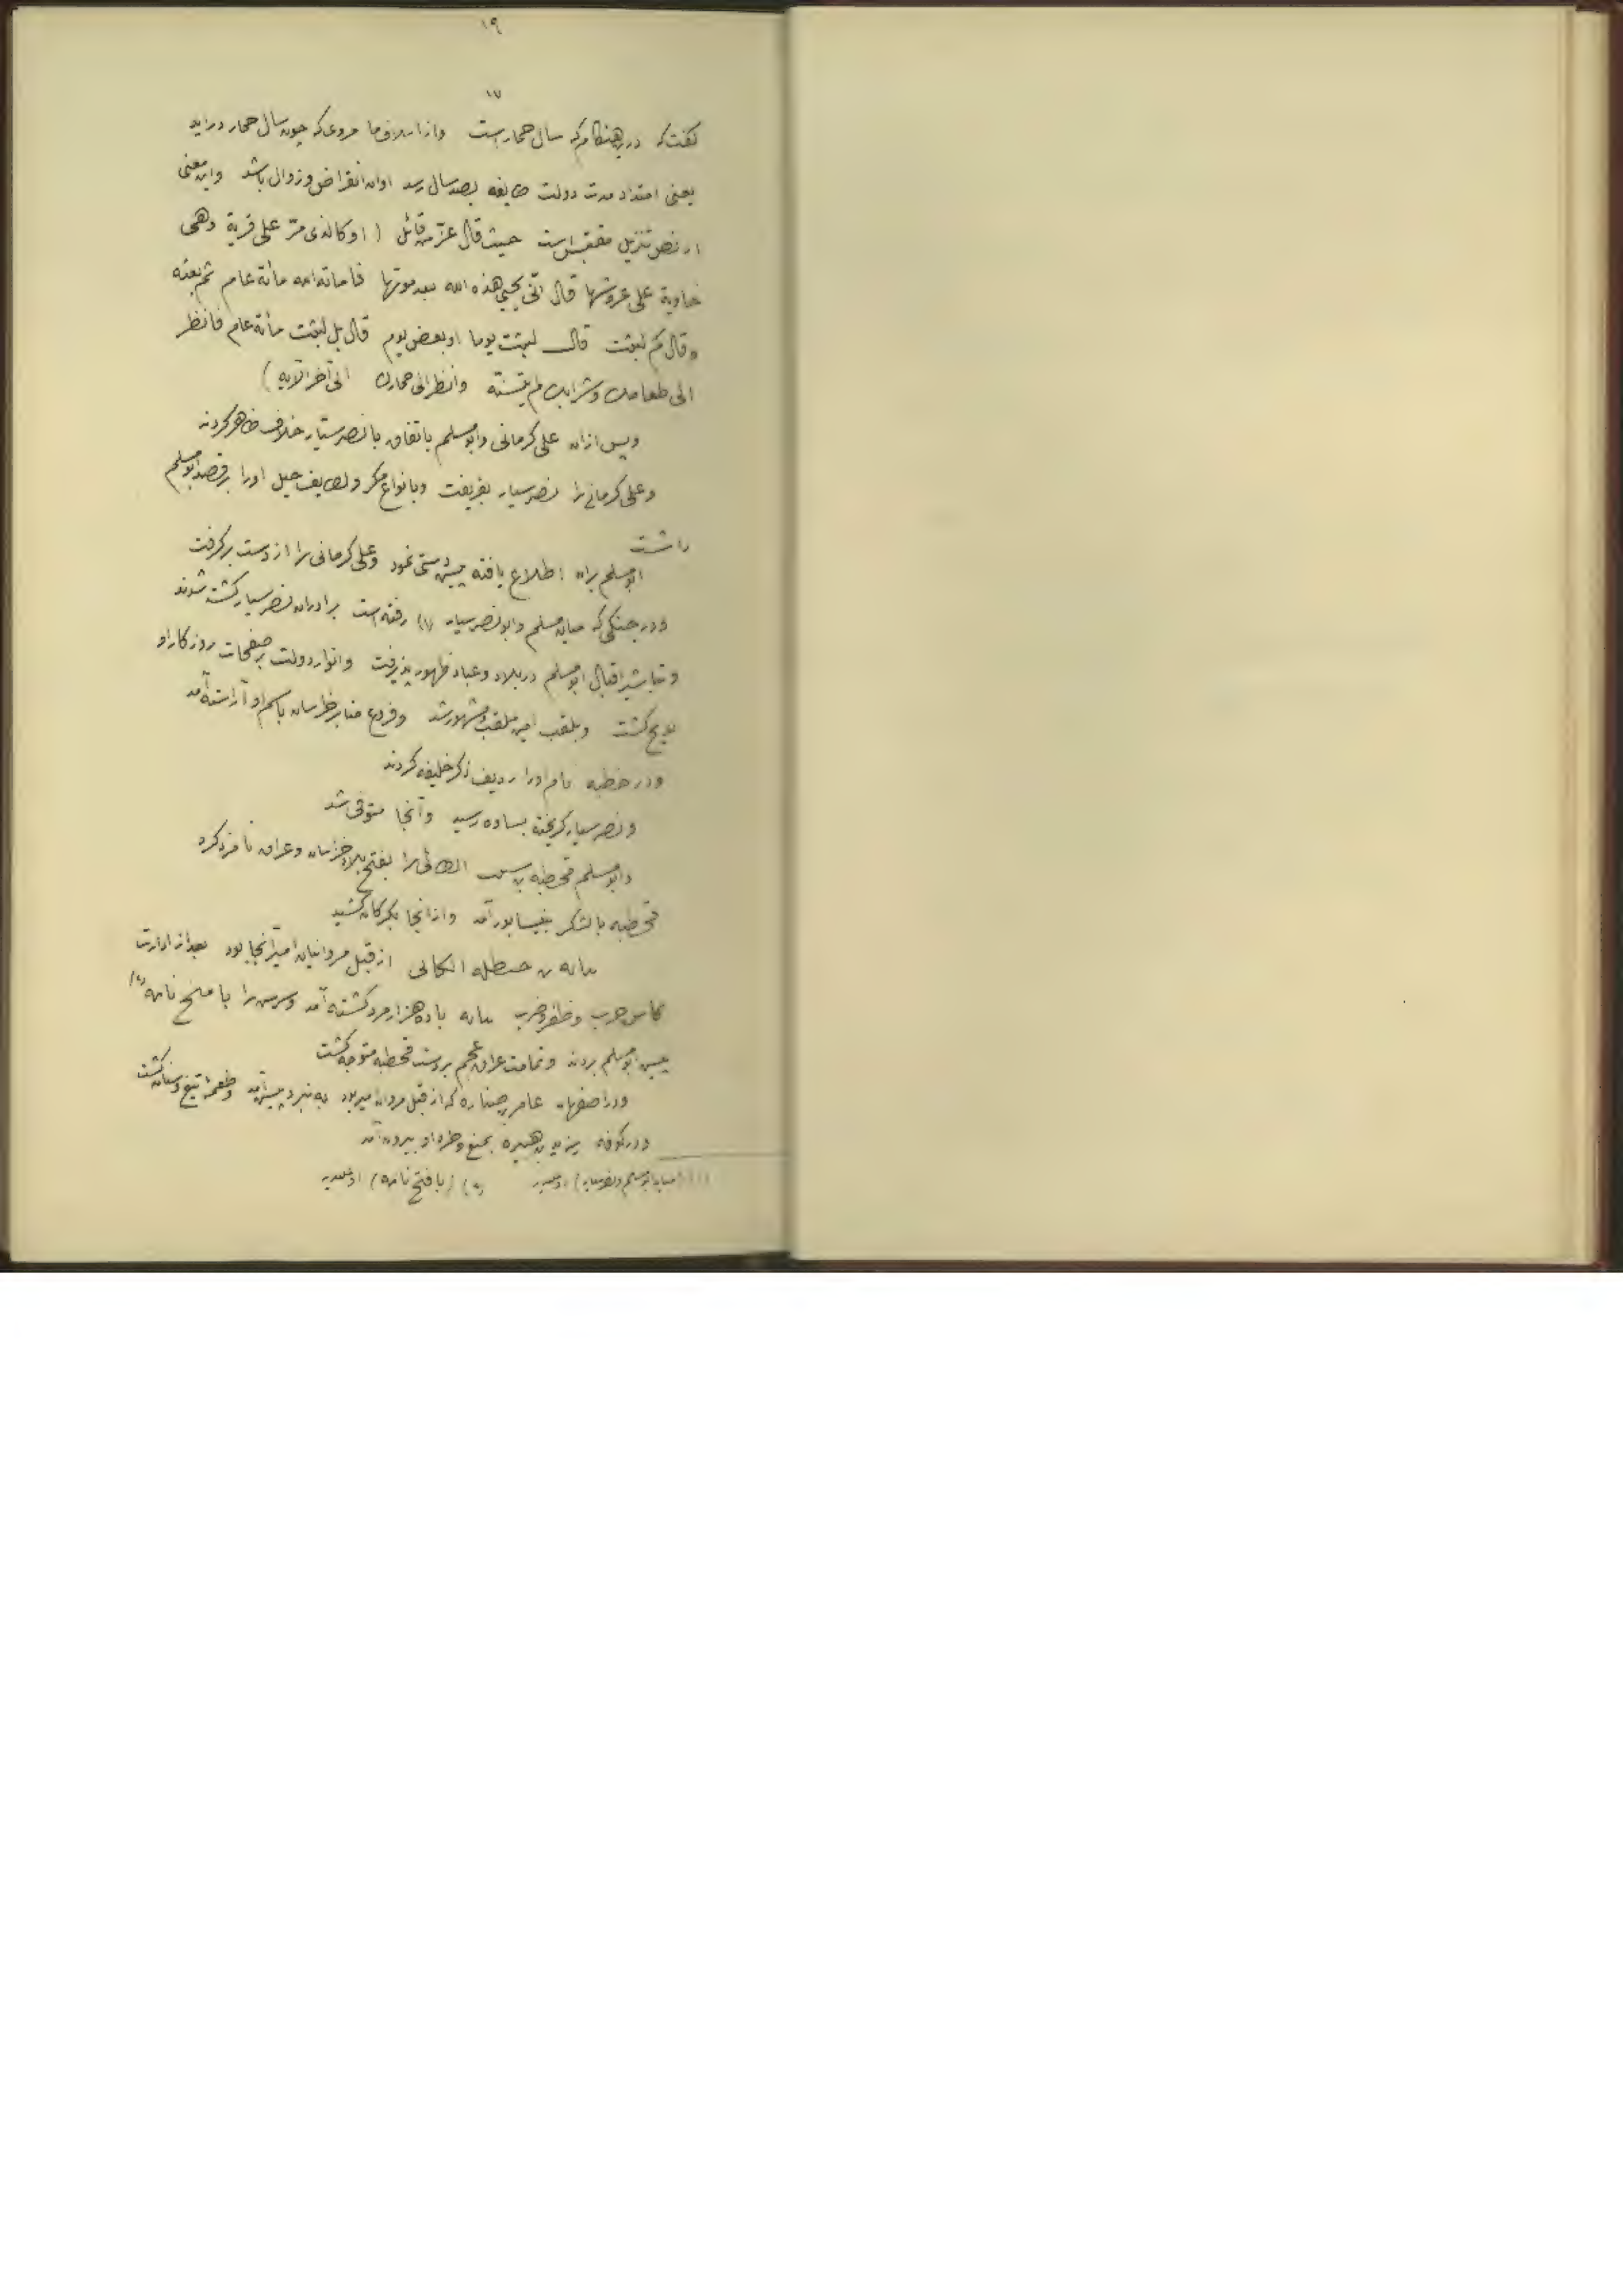 ١٩
١٧
گفت که درین هنگام که سال حمار است واز اسلاف ما مروی که چون سال حمار درآید
یعنی امتداد مدت دولت طایفه بصد سال رسد اوان انقراض وزوال باشد واین معنی
از نص تنزیل مقتبس است حیث قال عزّ من قائل ( او کالذی مرّ علی قریة وهی
خاویة علی عروشها قال انّی یحیی هذه الله بعد موتها فاماته الله مائة عام ثم بعثه
وقال کم لبثت قال لبثت یوما او بعض یوم قال بل لبثت مائة عام فانظر
الی طعامک وشرابک لم یتسنّه وانظر الی حمارک الی آخر الآیه )
وپس ازان علی کرمانی وابو مسلم باتفاق با نصر سیّار خلاف ظاهر کردند
وعلی کرمانی را نصر سیار بفریفت وبانواع مکر ولطایف حیل اورا بر قصد ابو مسلم
داشت
ابو مسلم بران اطلاع یافته پیش دستی نمود وعلی کرمانی را از دست برگرفت
ودر جنگی که میان مسلم وابو نصر سیار (١) رفته است برادران نصر سیار کشته شدند
وتباشیر اقبال ابو مسلم در بلاد وعباد ظهور پذیرفت وانوار دولت بر صفحات روزکار او
لایح گشت وبلقب امین ملقب ومشهور شد وفروع منابر خراسان باسم او آراسته آمد
ودر خطبه نام اورا ردیف ذکر خلیفه کردند
ونصر سیار گریخته بساوه رسید وآنجا متوفی شد
وابو مسلم قحطبه بن الطائی را بفتح بلاد خراسان وعراق نامزد کرد
قحطبه بالشکر بنیسابور آمد واز انجا بگرگان کشید
سانه بن حنظله الکلابی از قبل مروانیان امیر آنجا بود بعد از ادارت
کاس حرب وطعن وضرب سانه با ده هزار مرد کشته آمد وسرش را با منح نامه (٢)
پیش ابو مسلم بردند وتمامت عراق عجم بر دست قحطبه متوجه گشت
ودر اصفهان عامر بن ضباره که از قبل مروان امیر بود به نبرد پیش آمد وطعمۀ تیغ وسنان گشت
ودر کوفه یزید بن هبیره بمنع وطرد او بیرون آمد
(١) (میان ابو مسلم ونصر سیار) (٢) (با فتح نامه)